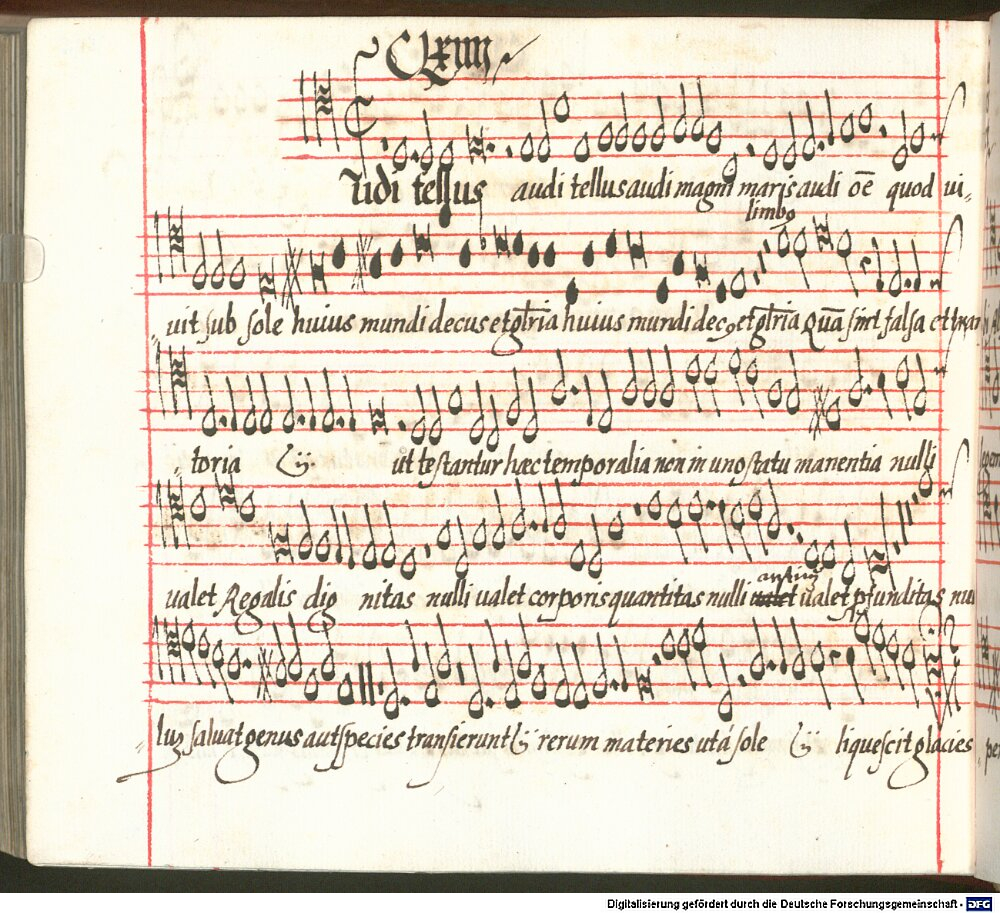 CLxiiii
Audi tellus audi tellus audi magni maris audi oē quod ui-
limbo
uit sub sole huius mundi decus et glr̄ia huius mundi dec9 et glr̄ia Quā sint falsa et tran
toria ij ut testantur hæc temporalia non in uno statu manentia nulli
antiū
ualet Regalis dig nitas nulli ualet corporis quantitas nulli ualet ualet pfunditas nu
saluat genus aut species transierunt ij rerum materies ut á sole ij liquescit glacies
Digitalisierung gefördert durch die Deutsche Forschungsgemeinschaft - DFG